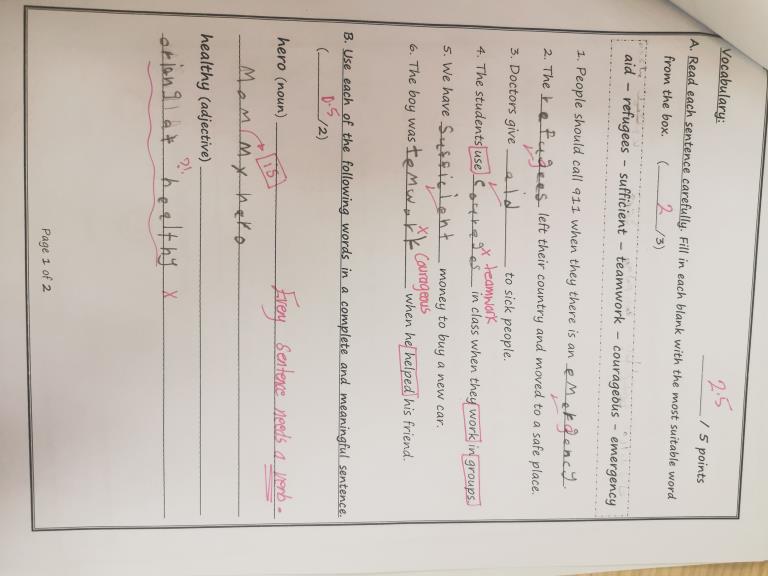 Vocabulary:
2.5 / 5 points
A. Read each sentence carefully. Fill in each blank with the most suitable word
from the box. ( 2 /3)
aid – refugees – sufficient – teamwork – courageous – emergency
1. People should call 911 when they there is an eMergency.
2. The refugees left their country and moved to a safe place.
3. Doctors give aid to sick people.
4. The students use courages x teamwork in class when they work in groups.
5. We have Sussicient money to buy a new car.
6. The boy was temwork x Courageous when he helped his friend.
B. Use each of the following words in a complete and meaningful sentence.
( 0.5 /2)
hero (noun) Every sentence needs a verb.
MoM is My hero
healthy (adjective)
?!
healthy x
Page 1 of 2